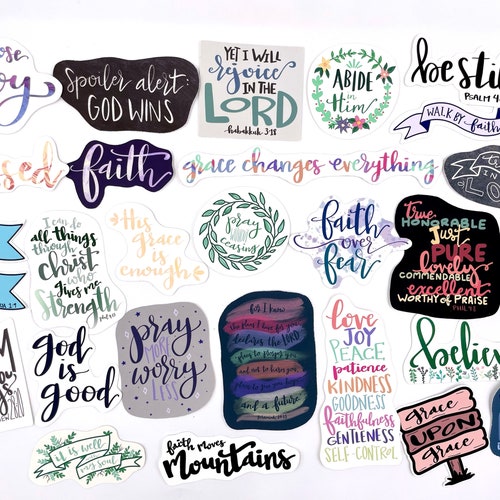 oy
Spoiler alert:
GOD WINS
YET I WILL
rejoice
IN THE
LORD
habakkuk 3:18
ABIDE
in
Him
be still
PSALM 4
WALK BY faith
sed
faith
grace changes everything
IN
LO
I can do
all things
through
Christ
who
Gives me
Strength
His
grace is
enough
pray
without
ceasing
faith
over
fear
true
HONORABLE
Just
PURE
lovely
COMMENDABLE
excellent
WORTHY of PRAISE
PHIL 4:8
god
is
good
pray
MORE
worry
LESS
for I know
the plans I have for you
declares the LORD
plans to prosper you
and not to harm you
plans to give you hope
and a future
love
JOY
PEACE
patience
KINDNESS
GOODNESS
faithfulness
GENTLENESS
SELF-CONTROL
believe
grace
UPON
grace
it is well
my soul
faith moves
Mountains